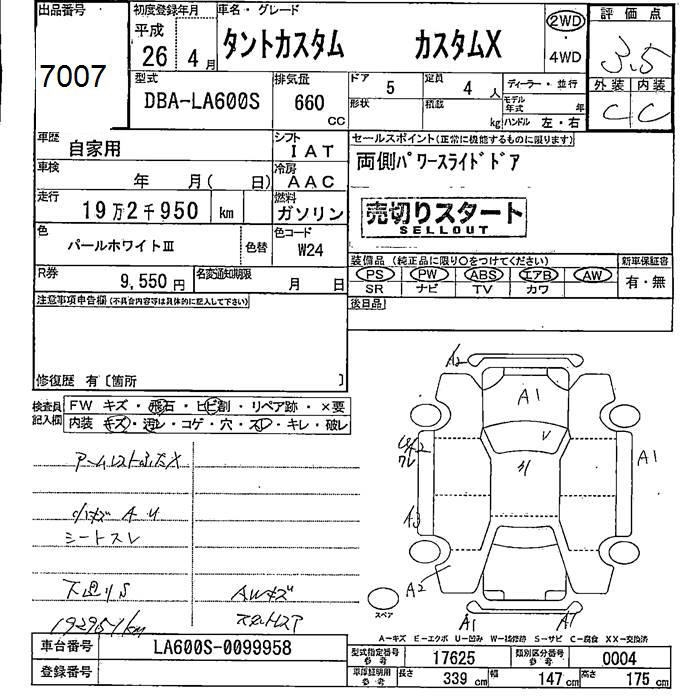 出品番号 初度登録年月 車名・グレード 評価点
7007 平成 26 4月 タントカスタム カスタムX 2WD ・ 4WD 3.5
型式 排気量 ドア 定員 ディーラー・並行 外装 内装
DBA-LA600S 660 CC 5 4人 C C
形状 積載 kg モデル年式 年
ハンドル 左・右
車歴 自家用 シフト IAT セールスポイント(正常に機能するものに限ります)
車検 年 月( 日) 冷房 AAC 両側パワースライドドア
走行 19万2千950 km 燃料 ガソリン 売切りスタート
SELLOUT
色 パールホワイトⅢ 色替 色コード W24
装備品 (純正品に限り○をつけてください) 新車保証書
R券 9,550円 名変通知期限 月 日 PS PW ABS エアB AW 有・無
SR ナビ TV カワ
注意事項申告欄(不具合内容等は具体的に記入して下さい) 後日品
修復歴 有〔箇所 〕
検査員記入欄 FW キズ・飛石・ヒビ割・リペア跡・×要
内装 キズ・汚レ・コゲ・穴・スレ・キレ・破レ
A2
A1
V
アームレストふたX
A1
小キズ A U
A3
シートスレ
下廻りS AWキズ
A2
スペア
192951km
A1 A1
A−キズ E−エクボ U−凹み W−補修跡 S−サビ C−腐食 XX−交換済
車台番号 LA600S-0099958 型式指定番号 参考 17625 類別区分番号 参考 0004
登録番号 車庫証明用 参考 長さ 339 cm 幅 147 cm 高さ 175 cm